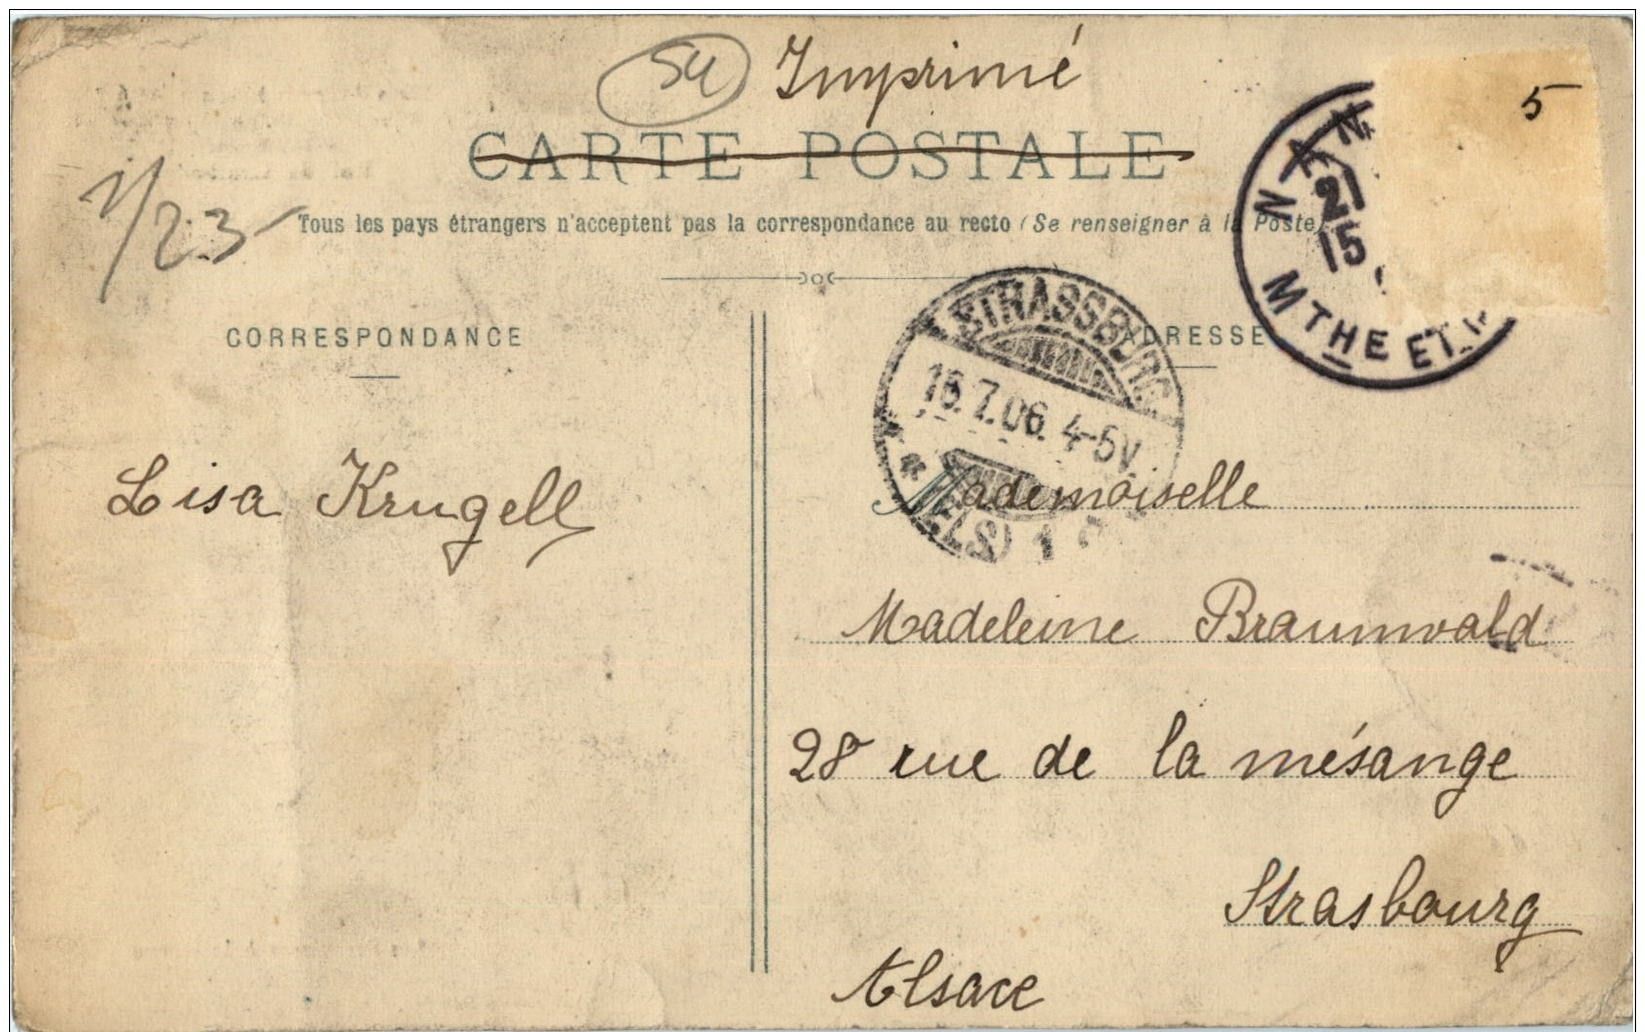 54 Imprimé
5
CARTE POSTALE
Tous les pays étrangers n'acceptent pas la correspondance au recto (Se renseigner à la Poste)
23
NAN
21
15
MTHE ET
CORRESPONDANCE
ADRESSE
STRASSBURG
16.7.06. 4-5V
* (ELS) 1
Lisa Krugell
Mademoiselle
Madeleine Braunwald
28 rue de la mésange
Strasbourg
Alsace